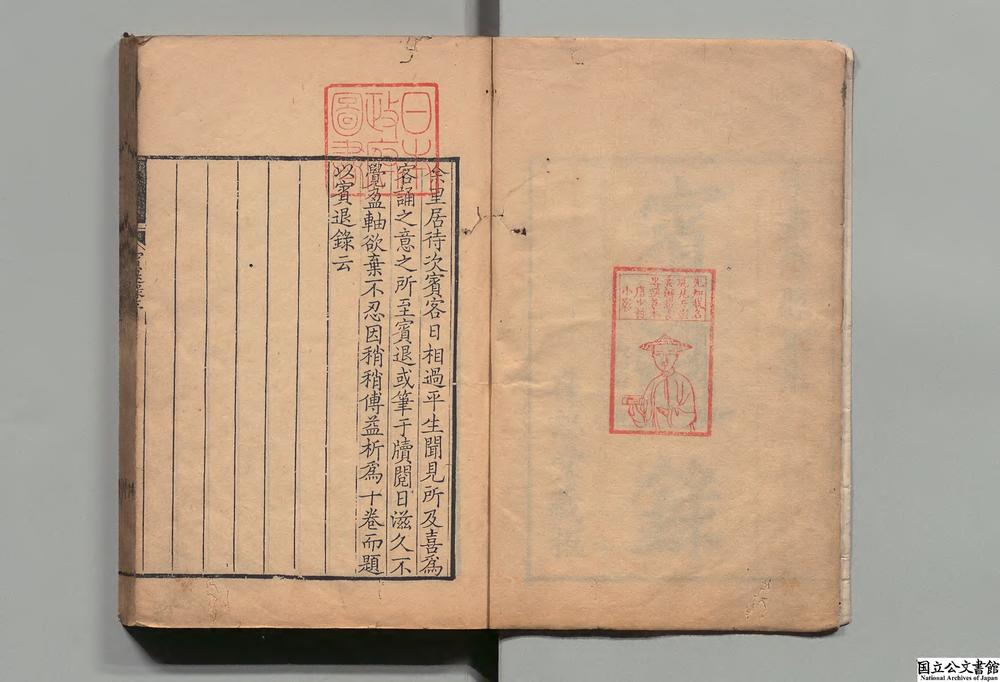 余里居待次賓客日相過平生聞見所及喜為
客誦之意之所至賓退或筆于牘閱日滋久不
覺盈軸欲棄不忍因稍稍傅益析為十卷而題
以賓退錄云
日本
政府
圖書
国立公文書館
National Archives of Japan